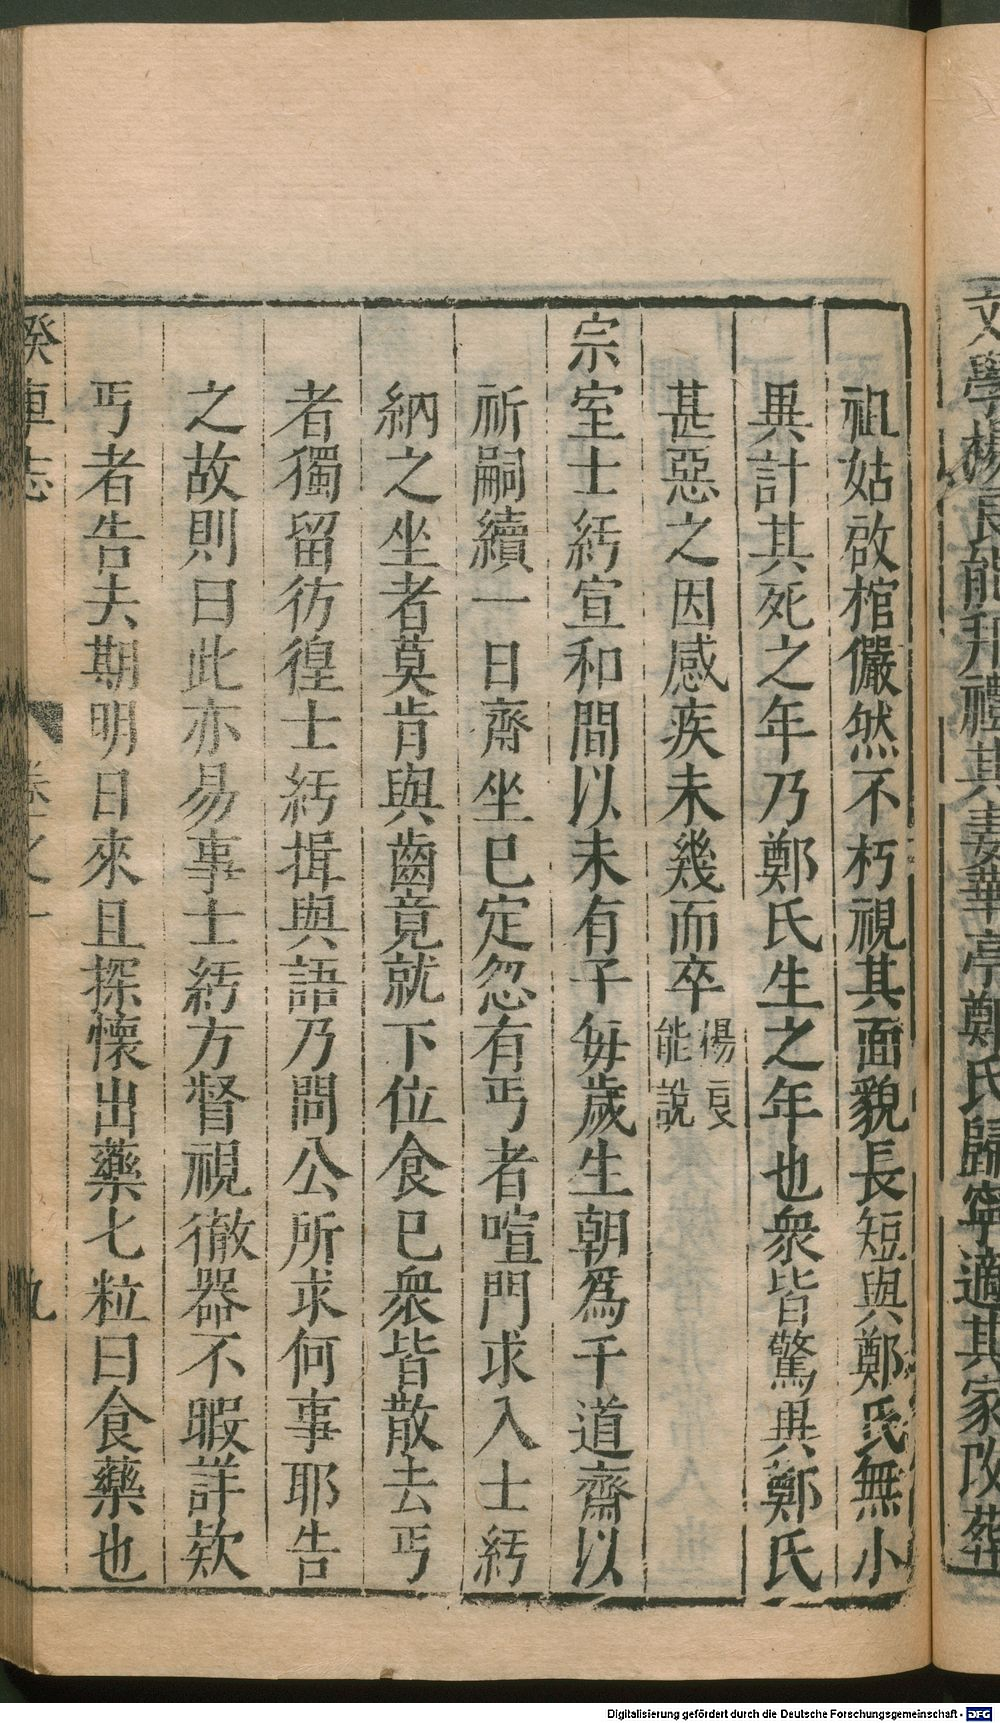 文學楊良能再禮其妻華亭鄭氏歸寧適其家改葬
祖姑啟棺儼然不朽視其面貌長短與鄭氏無小
異計其死之年乃鄭氏生之年也衆皆驚異鄭氏
甚惡之因感疾未幾而卒楊良能說
宗室士紆宣和間以未有子每歲生朝為千道齋以
祈嗣續一日齋坐已定忽有丐者喧門求入士紆
納之坐者莫肯與齒竟就下位食已衆皆散去丐
者獨留彷徨士紆揖與語乃問公所求何事耶告
之故則曰此亦易事士紆方督視徹器不暇詳欵
丐者告去期明日來且探懷出藥七粒曰食藥也
睽車志 卷之一 九
Digitalisierung gefördert durch die Deutsche Forschungsgemeinschaft - DFG